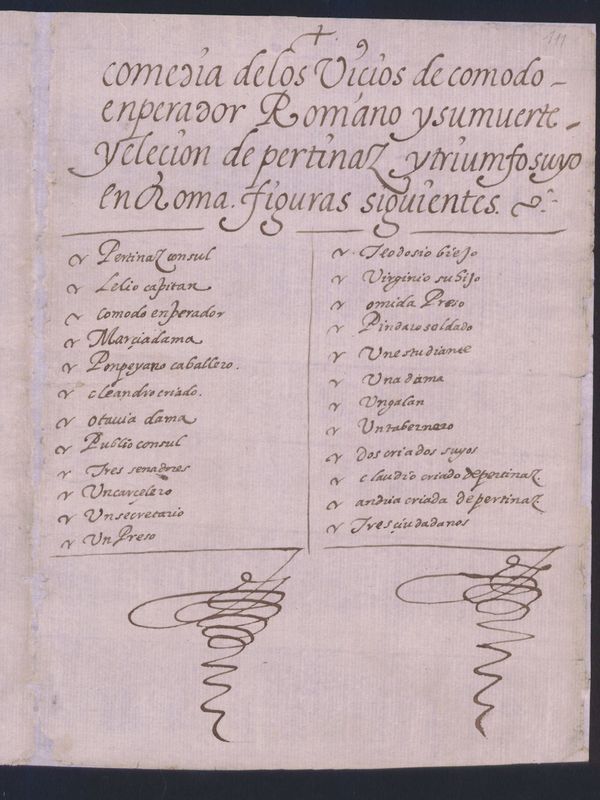 111
comedia delos Vicios de comodo
enperador Romano y su muerte
y elecion de pertinaz y triumfo suyo
en Roma. figuras siguientes.
Pertinaz consul
Lelio capitan
comodo enperador
Marcia dama
Ponpeyano caballero.
cleandro criado.
otauia dama
Publio consul
Tres senadores
Un carçelero
Un secretario
Un Preso
Teodosio biejo
Virginio su hijo
omida Preso
Pindaro soldado
Un estudiante
Una dama
Un galan
Un tabernero
Dos criados suyos
claudio criado de pertinaz.
andria criada de pertinaz
Tres çiudadanos